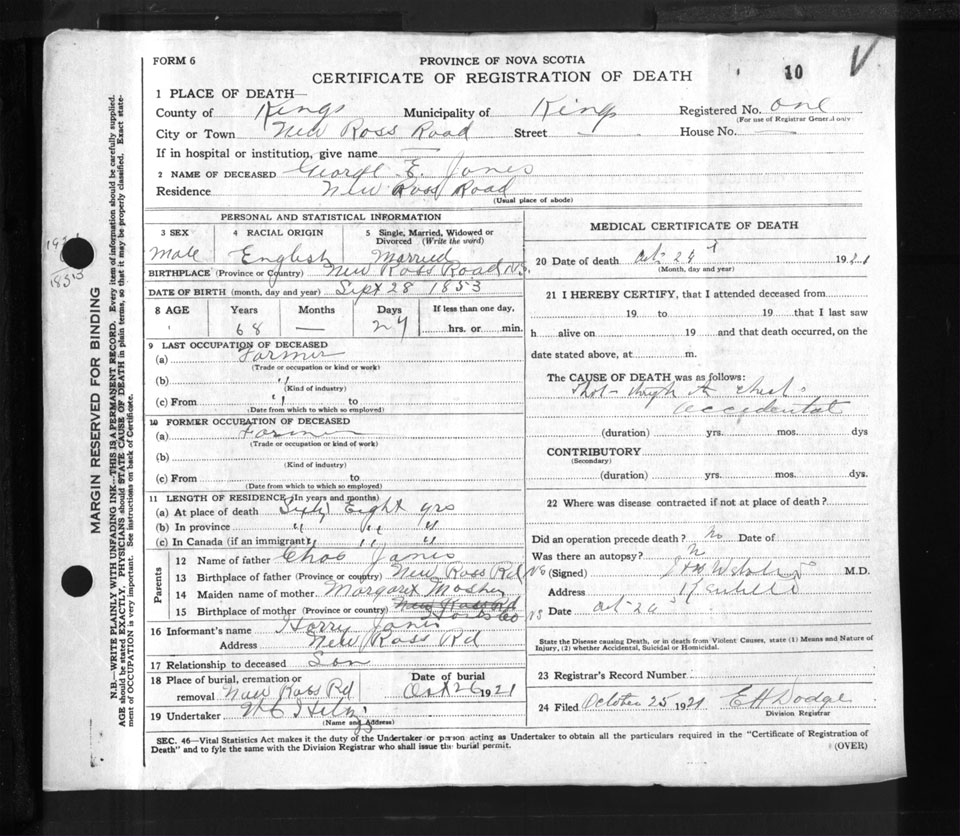 FORM 6
PROVINCE OF NOVA SCOTIA
CERTIFICATE OF REGISTRATION OF DEATH
10
V
1 PLACE OF DEATH—
County of Kings Municipality of Kings Registered No. one
(For use of Registrar General only)
City or Town New Ross Road Street — House No. —
If in hospital or institution, give name —
2 NAME OF DECEASED George E. Jones
Residence New Ross Road
(Usual place of abode)
PERSONAL AND STATISTICAL INFORMATION
3 SEX 4 RACIAL ORIGIN 5 Single, Married, Widowed or Divorced (Write the word)
Male English Married
BIRTHPLACE (Province or Country) New Ross Road NS.
DATE OF BIRTH (month, day and year) Sept 28 1853
8 AGE Years Months Days If less than one day,
68 — 27 hrs. or min.
9 LAST OCCUPATION OF DECEASED
(a) Farmer
(Trade or occupation or kind or work)
(b) "
(Kind of industry)
(c) From " to
(Date from which to which so employed)
10 FORMER OCCUPATION OF DECEASED
(a) Farmer
(Trade or occupation or kind of work)
(b)
(Kind of industry)
(c) From to
(Date from which to which so employed)
11 LENGTH OF RESIDENCE (In years and months)
(a) At place of death Sixty Eight yrs
(b) In province " " "
(c) In Canada (if an immigrant) " " "
Parents
12 Name of father Chas Jones
13 Birthplace of father (Province or country) New Ross Rd NS
14 Maiden name of mother Margaret Mosher
15 Birthplace of mother (Province or country) New Ross Rd Hants Co NS
16 Informant's name Harry Jones
Address New Ross Rd
17 Relationship to deceased Son
18 Place of burial, cremation or removal New Ross Rd Date of burial Oct 26 1921
19 Undertaker
(Name and Address)
MEDICAL CERTIFICATE OF DEATH
20 Date of death Oct 24 1921
(Month, day and year)
21 I HEREBY CERTIFY, that I attended deceased from
19 to 19 that I last saw
h alive on 19 and that death occurred, on the
date stated above, at m.
The CAUSE OF DEATH was as follows:
Shot through the chest
accidental
(duration) yrs. mos. dys
CONTRIBUTORY
(Secondary)
(duration) yrs. mos. dys.
22 Where was disease contracted if not at place of death?
Did an operation precede death? No Date of
Was there an autopsy? N
(Signed) M.D.
Address Kentville
Date Oct 26
State the Disease causing Death, or in death from Violent Causes, state (1) Means and Nature of
Injury, (2) whether Accidental, Suicidal or Homicidal.
23 Registrar's Record Number
24 Filed October 25 1921 E H Dodge
Division Registrar
SEC. 46—Vital Statistics Act makes it the duty of the Undertaker or person acting as Undertaker to obtain all the particulars required in the "Certificate of Registration of
Death" and to fyle the same with the Division Registrar who shall issue the burial permit.
(OVER)
MARGIN RESERVED FOR BINDING
N.B.—WRITE PLAINLY WITH UNFADING INK—THIS IS A PERMANENT RECORD. Every item of information should be carefully supplied.
AGE should be stated EXACTLY. PHYSICIANS should STATE CAUSE OF DEATH in plain terms, so that it may be properly classified. Exact state-
ment of OCCUPATION is very important. See instructions on back of Certificate.